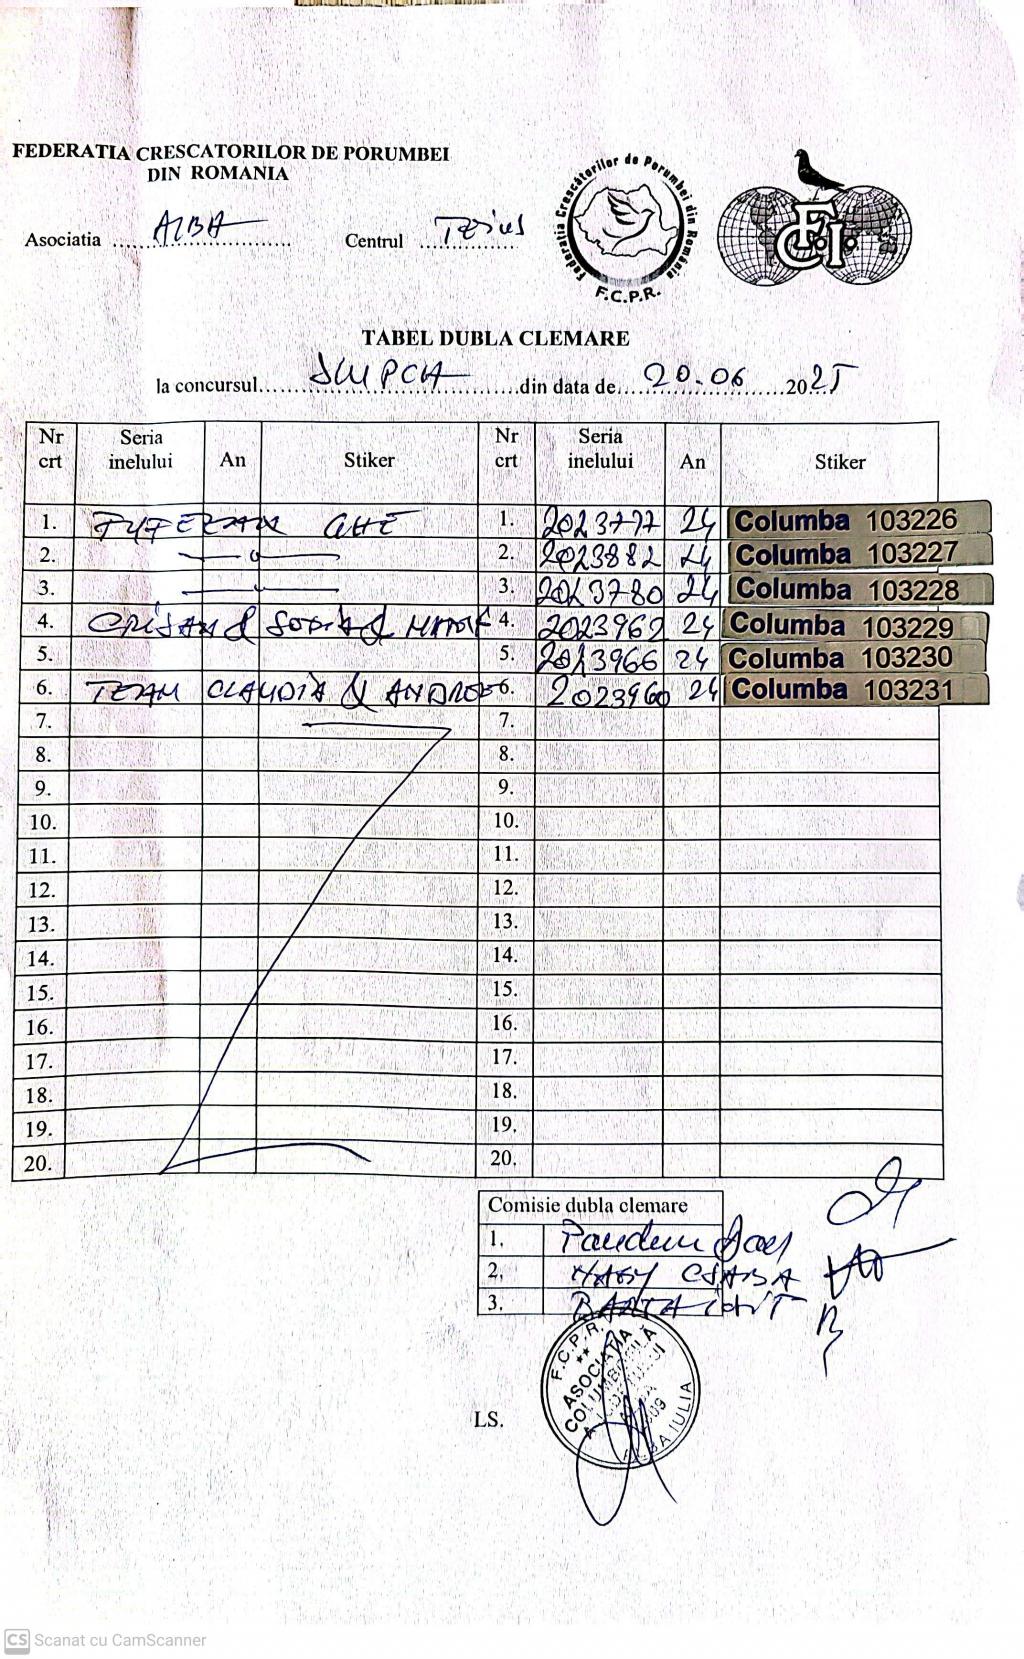 FEDERATIA CRESCATORILOR DE PORUMBEI
DIN ROMANIA
Asociatia ALBA Centrul Teius
Federația Crescătorilor de Porumbei din România
F.C.P.R.
F.C.I.
TABEL DUBLA CLEMARE
la concursul SLUPCA din data de 20.06 2025
Nr crt Seria inelului An Stiker Nr crt Seria inelului An Stiker
1. GHE 1. 2023777 24 Columba 103226
2. —〃— 2. 2023882 24 Columba 103227
3. —〃— 3. 2023780 24 Columba 103228
4. CRISAN & SOFIA & MARK 4. 2023962 24 Columba 103229
5. 5. 2023966 24 Columba 103230
6. TEAM CLAUDIA & ANDREE 6. 2023960 24 Columba 103231
7. 7.
8. 8.
9. 9.
10. 10.
11. 11.
12. 12.
13. 13.
14. 14.
15. 15.
16. 16.
17. 17.
18. 18.
19. 19.
20. 20.
Comisie dubla clemare
1.
2. NAGY CSABA
3. BARTA
LS.
F.C.P.R.
ASOCIAȚIA
COLUMBOFILĂ
A JUDEȚULUI
ALBA
ALBA IULIA
CS Scanat cu CamScanner